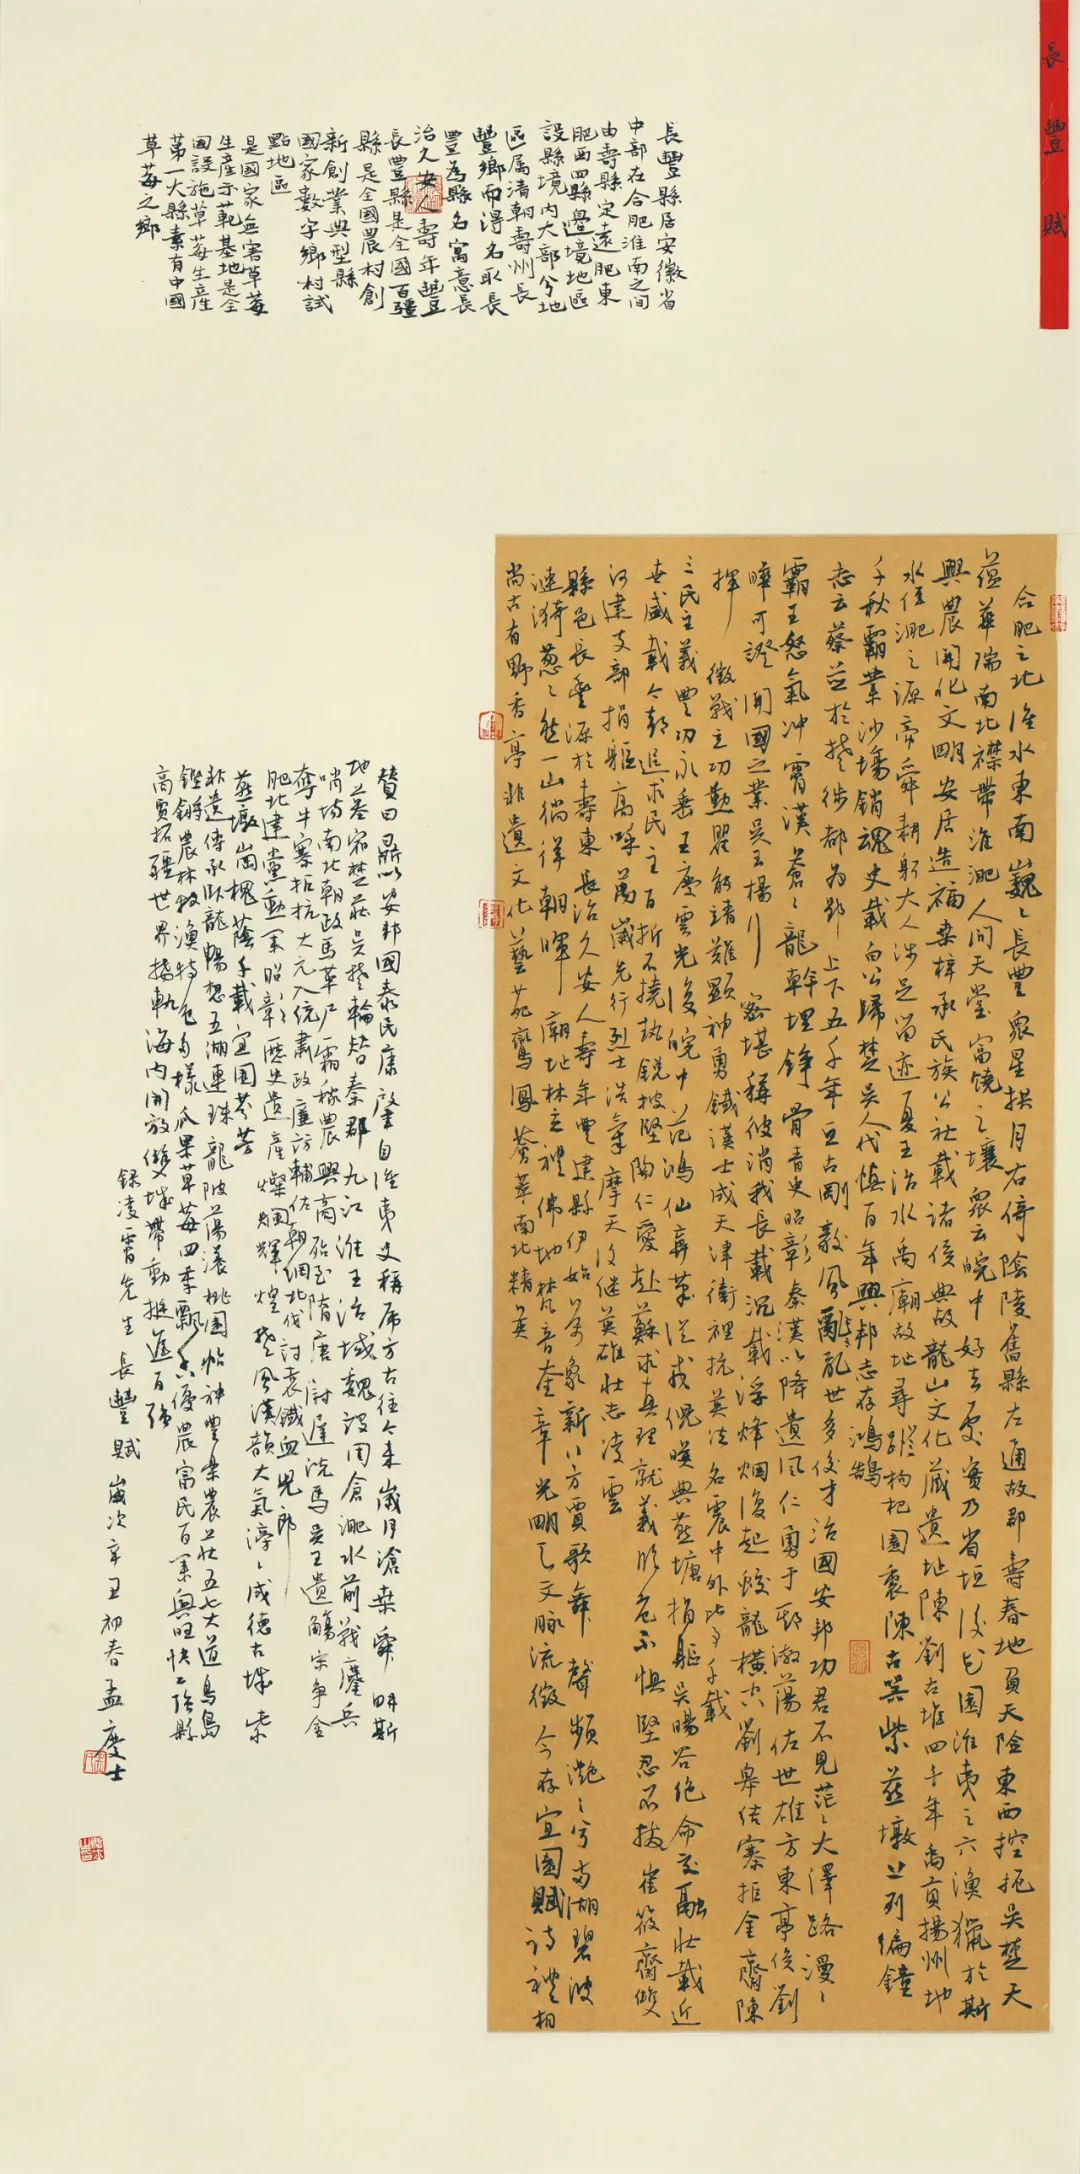 長豐賦
長豐縣居安徽省
中部在合肥淮南之间
由壽縣定遠肥東
肥西四縣邊境地區
設縣境内大部兮地
區属清朝壽州長
豐鄉而得名取長
豐為縣名寓意長
治久安人壽年豐
長豐縣是全國百疆
縣是全國農村創
新創業典型縣
國家數字鄉村試
點地區
是國家無害草莓
生產示範基地是全
國設施草莓生産
第一大縣素有中國
草莓之鄉
合肥之北淮水東南巍〻長豊衆星拱月右倚陰陵舊縣左通故郡壽春地負天險東西控扼吴楚天
蕴華瑞南北襟帶淮淝人间天堂富饒之壤衆云皖中好去處實乃省垣後花園淮夷之六漁獵於斯
興農開化文明安居造福桑梓承氏族公社載诸侯典故龍山文化蔵遺址陳劉古堆四千年禹貢揚州地
水值淝之源帝舜耕躬大人涉足留迹夏王治水禹廟故址尋蹤枸杞園裏陳古吴紫蓝墩上列编鐘
千秋霸業沙場銷魂史載白公歸楚吴人代慎百年興邦志存鴻鵠
志云蔡並於楚徙都为郢上下五千年亘古剛毅风亂亂世多俊才治國安邦功君不見茫〻大澤路漫〻
霸王怒氣冲霄漢蒼〻龍幹埋錚骨青史昭彰秦漢以降遺风仁勇于邳激蕩佐世雄方東亭侯劉
曄可證開國之業吴王楊行密堪稱彼消我長載沉載浮烽烟復起蛟龍横空劉皋佶寨拒金齋陳
揮徵戰主功勤瞿能靖難顯神勇鐵漢士成天津衛裡抗英法名震中外此事千載
三民主義豐功永垂王慶雲光復皖中范鴻仙棄筆從戎倪映典燕塘捐軀吴暘谷绝命交融壯載近
世威載今朝追求民主百折不撓執鋭披堅陶仁愛赴蘇求真理就義临危不惧堅忍不拔崔筱齋雙
河建支部捐軀高呼萬歲先行烈士浩氣摩天後继英雄壮志凌雲
縣邑長豐源於壽東長治久安人壽年豐建縣伊始萬象新八方賈歌舞聲频滟〻兮高湖碧波
漣漪葱〻然一山徜徉朝暉廟址林立禮佛地梵音奎章光明之文脉流徵今存宜園赋诗禮相
尚古有野香亭非遺文化藝苑鸞鳳薈萃南北精英
赞曰鼎以安邦國泰民康肇自淮夷史稱虎方古往今来歲月滄桑舜耕斯
地上蔡宿楚莊吴楚輪替秦郡九江淮王治域魏設周倉淝水前戰鏖兵
哨场南北朝政馬草户霜稼農興高殆至隋唐尉遲洗馬吴王遺觴宋争金
奪牛寨拒抗大元入统肃政廉訪輔佐朝綱北伐討袁鐵血兒郎
肥北建黨勳業昭彰歷史遺産燦爛輝煌楚风漢韻大氣滂〻成德古城紫
蓝墩崗槐蔭千載宜園芬芳
非遗傳承臥龍暢想五湖連珠龍陂蕩漾桃園帖神豐樂農莊五七大道鳥島
鏗鏘農林牧漁特色多樣瓜果草莓四季飄香優農富民百業興旺快〻强縣
商貿拓疆世界接軌海内開放雙城帶動挺進百强
録凌霄先生長豐賦歲次辛丑初春孟慶士